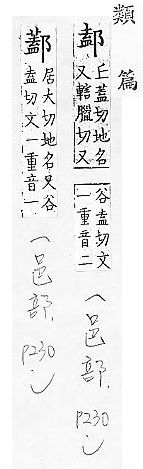 類篇
丘蓋切地名
又轄臘切又
谷盍切文
一重音二
(邑部. P230)
居大切地名又谷
盍切文一重音一
(邑部. P230)